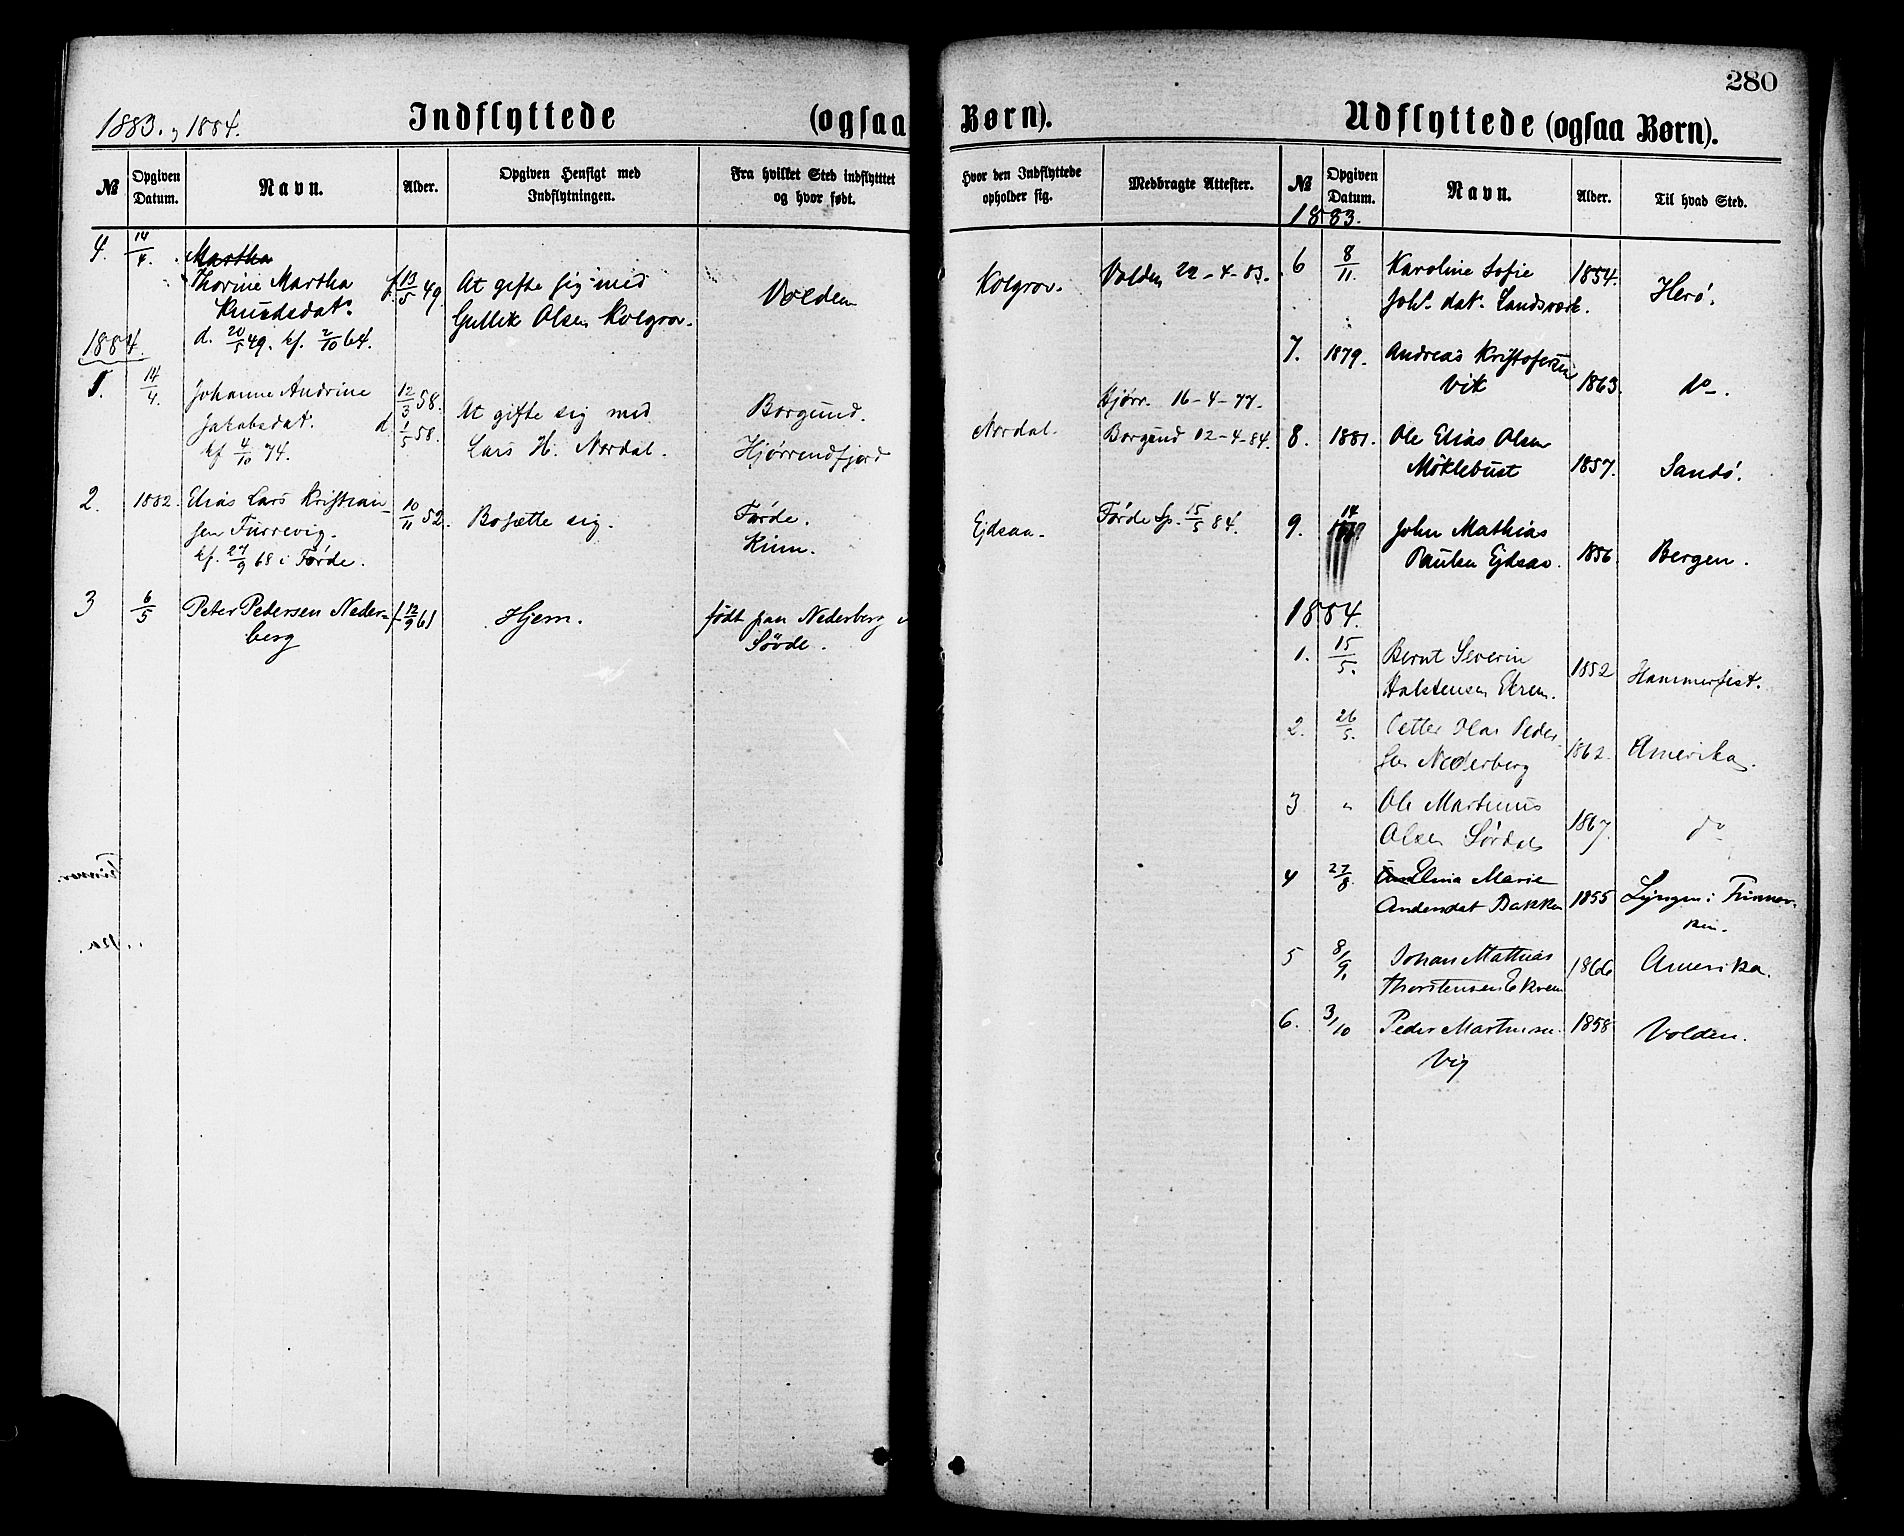 280
1883. og 1884.
Indflyttede (ogsaa Børn).
Udflyttede (ogsaa Børn).
№ Opgiven Datum. Navn. Alder. Opgiven Hensigt med Indflytningen. Fra hvilket Sted indflytttet og hvor født. Hvor den Indflyttede opholder sig. Medbragte Attester.
4. 14/4. Martha
Thorine Martha f. 13/5 49. At gifte sig med Volden Kolgrov. Volden 22-4-83.
Knudsdat. Gullik Olsen Kolgrov.
d. 20/5 49. kf. 2/10 64.
1884.
1. 14/4. Johanne Andrine 12/3 58. At gifte sig med Borgund. Nordal. Hjørr. 16-4-77.
Jakobsdat. d. 1/5 58. Lars H. Nordal. Hjørrendfjord Borgund 12-4-84.
kf 4/10 74.
2. 1882. Elias Lars Kristian- 10/11 52. Bosætte sig. Førde. Ejdsaa. Førde Sp. 15/5 84.
sen Furrevig. Kinn.
kf. 27/9 68 i Førde.
3 6/5 Peter Pedersen Neder- f. 12/9 61 Hjem. født paa Nederberg i
berg Søvde.
№ Opgiven Datum. Navn. Alder. Til hvad Sted.
1883.
6 8/11. Karoline Sofie 1854. Herø.
Joh. dat. Landsværk.
7. 1879. Andreas Kristofersen
Vik 1863. do.
8. 1881. Ole Elias Olsen
Møklebust 1857. Sandø.
9. 14 1879 John Mathias
Paulsen Ejdsaa. 1856. Bergen.
1884.
1. 15/5. Bernt Severin 1852 Hammerfest.
Halstensen Ekrem.
2. 26/5. Petter Peder
sen Nederberg 1862. Amerika.
3 " Ole Martinus 1867. do
Olsen Sørdal
4 27/8. Elina Marie
Andersdat Bakken 1855 Lyngen i Finmar-
ken.
5 8/9. Johan Mathias 1866 Amerika.
Thorstensen Ekrem
6. 3/10 Peder Martinsen 1858 Volden.
Vig